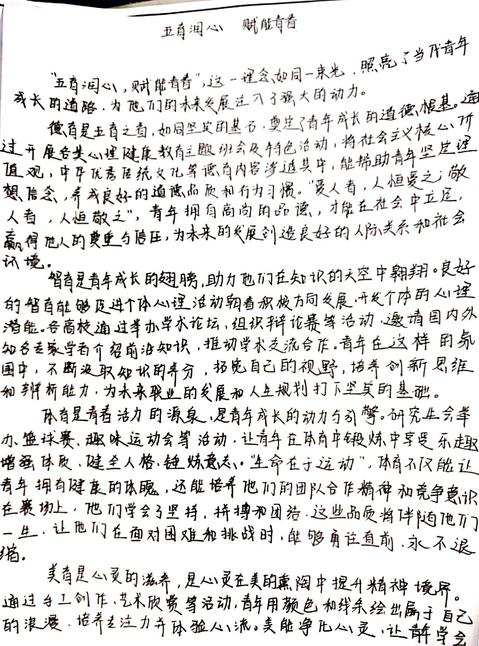 五育润心 赋能青春
"五育润心，赋能青春"，这一理念如同一束光，照亮了当代青年
成长的道路，为他们的未来发展注入了强大的动力。
德育是五育之首，如同坚实的基石，奠定了青年成长的道德根基。通
过开展各类心理健康教育主题班会及特色活动，将社会主义核心价
值观，中华优秀传统文化等德育内容渗透其中，能帮助青年坚定理
想信念，养成良好的道德品质和行为习惯。"爱人者，人恒爱之；敬
人者，人恒敬之"，青年拥有高尚的品德，才能在社会中立足，
赢得他人的尊重与信任，为未来的发展创造良好的人际关系和社会
环境。
智育是青年成长的翅膀，助力他们在知识的天空中翱翔。良好
的智育能够促进个体心理活动朝着积极方向发展，开发个体的心理
潜能。各高校通过举办学术论坛，组织辩论赛等活动，邀请国内外
知名专家学者介绍前沿知识，推动学术交流合作。青年在这样的氛
围中，不断汲取知识的养分，拓宽自己的视野，培养创新思维
和辨析能力，为未来职业的发展和人生规划打下坚实的基础。
体育是青春活力的源泉，是青年成长的动力与引擎。研究生会举
办篮球赛、趣味运动会等活动，让青年在体育中锻炼中享受乐趣
增强体质，健全人格，锤炼意志。"生命在于运动"，体育不仅能让
青年拥有健康的体魄，还能培养他们的团队合作精神和竞争意识
在赛场上，他们学会了坚持，拼搏和团结，这些品质将伴随他们
一生，让他们在面对困难和挑战时，能够勇往直前，永不退
缩。
美育是心灵的滋养，是心灵在美的熏陶中提升精神境界。
通过手工创作、艺术欣赏等活动，青年用颜色和线条绘出属于自己
的浪漫，培养专注力并体验心流。美能净化心灵，让青年学会